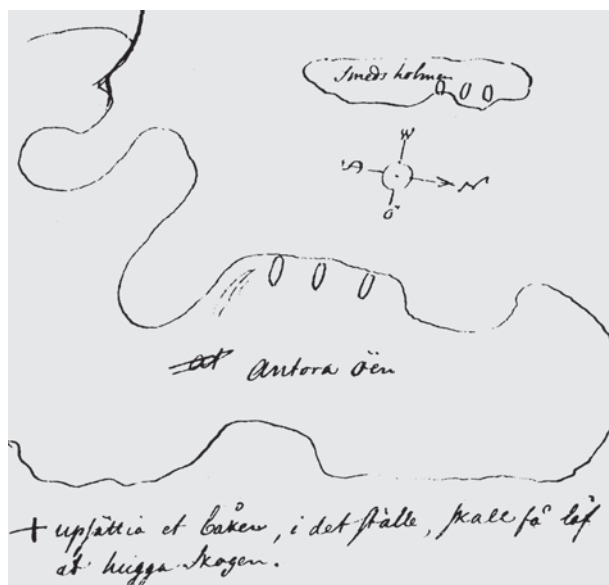 Smeds holmen
W
S N
Ö
at Antora öen
+ upsättia et båken, i det ställe, skall få låf
at hugga skogen.